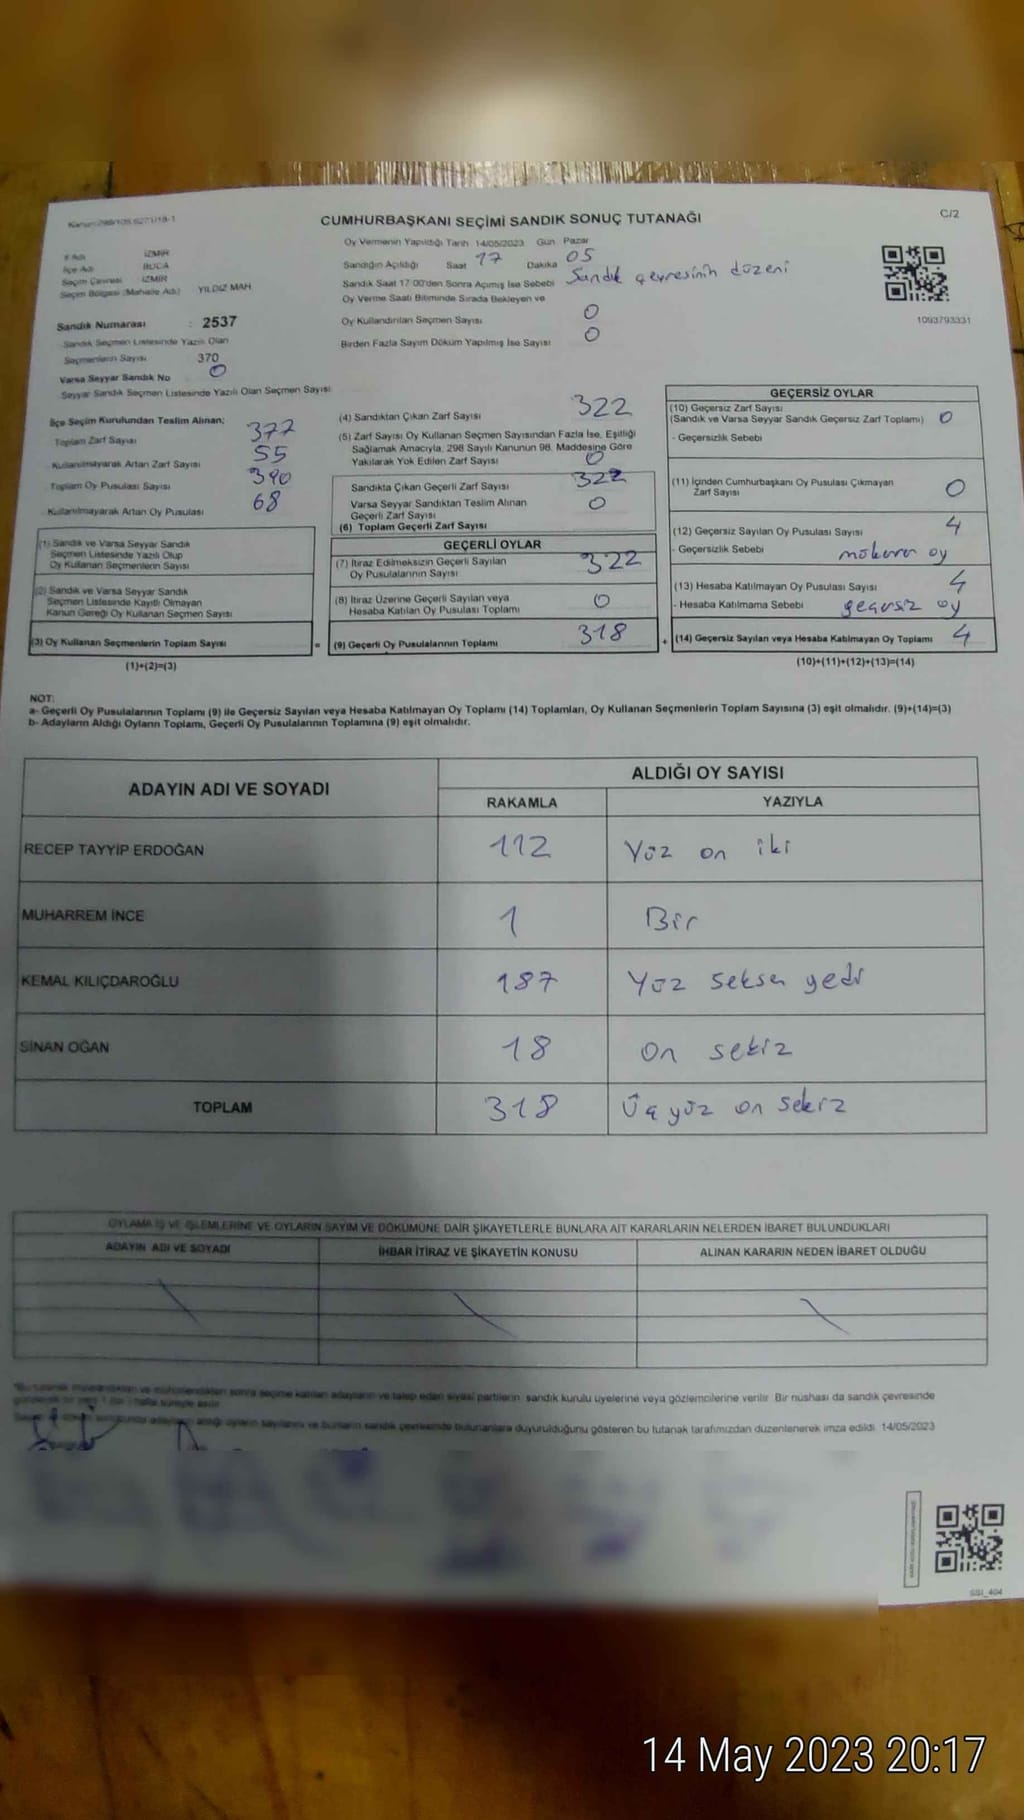 CUMHURBAŞKANI SEÇİMİ SANDIK SONUÇ TUTANAĞI
C/2
İl Adı İZMİR
İlçe Adı BUCA
Seçim Çevresi İZMİR
Seçim Bölgesi (Mahalle Adı) YILDIZ MAH
Sandık Numarası : 2537
Sandık Seçmen Listesinde Yazılı Olan
Seçmenlerin Sayısı 370
Varsa Seyyar Sandık No 0
Seyyar Sandık Seçmen Listesinde Yazılı Olan Seçmen Sayısı
Oy Vermenin Yapıldığı Tarih 14/05/2023 Gün Pazar
Sandığın Açıldığı Saat 17 Dakika 05
Sandık Saat 17:00'den Sonra Açımış İse Sebebi Sandık çevresinin düzeni
Oy Verme Saati Bitiminde Sırada Bekleyen ve
Oy Kullandırılan Seçmen Sayısı 0
Birden Fazla Sayım Döküm Yapılmış İse Sayısı 0
1093793331
İlçe Seçim Kurulundan Teslim Alınan;
Toplam Zarf Sayısı 377
Kullanılmayarak Artan Zarf Sayısı 55
Toplam Oy Pusulası Sayısı 390
Kullanılmayarak Artan Oy Pusulası 68
(1) Sandık ve Varsa Seyyar Sandık
Seçmen Listesinde Yazılı Olup
Oy Kullanan Seçmenlerin Sayısı
(2) Sandık ve Varsa Seyyar Sandık
Seçmen Listesinde Kayıtlı Olmayan
Kanun Gereği Oy Kullanan Seçmen Sayısı
(3) Oy Kullanan Seçmenlerin Toplam Sayısı =
(1)+(2)=(3)
(4) Sandıktan Çıkan Zarf Sayısı 322
(5) Zarf Sayısı Oy Kullanan Seçmen Sayısından Fazla İse, Eşitliği
Sağlamak Amacıyla, 298 Sayılı Kanunun 98. Maddesine Göre
Yakılarak Yok Edilen Zarf Sayısı 0
Sandıkta Çıkan Geçerli Zarf Sayısı 322
Varsa Seyyar Sandıktan Teslim Alınan
Geçerli Zarf Sayısı 0
(6) Toplam Geçerli Zarf Sayısı
GEÇERLİ OYLAR
(7) İtiraz Edilmeksizin Geçerli Sayılan
Oy Pusulalarının Sayısı 322
(8) İtiraz Üzerine Geçerli Sayılan veya
Hesaba Katılan Oy Pusulası Toplamı 0
(9) Geçerli Oy Pusulalarının Toplamı 318 +
GEÇERSİZ OYLAR
(10) Geçersiz Zarf Sayısı
(Sandık ve Varsa Seyyar Sandık Geçersiz Zarf Toplamı) 0
- Geçersizlik Sebebi
(11) İçinden Cumhurbaşkanı Oy Pusulası Çıkmayan
Zarf Sayısı 0
(12) Geçersiz Sayılan Oy Pusulası Sayısı 4
- Geçersizlik Sebebi mükerrer oy
(13) Hesaba Katılmayan Oy Pusulası Sayısı 4
- Hesaba Katılmama Sebebi geçersiz oy
(14) Geçersiz Sayılan veya Hesaba Katılmayan Oy Toplamı 4
(10)+(11)+(12)+(13)=(14)
NOT:
a- Geçerli Oy Pusulalarının Toplamı (9) ile Geçersiz Sayılan veya Hesaba Katılmayan Oy Toplamı (14) Toplamları, Oy Kullanan Seçmenlerin Toplam Sayısına (3) eşit olmalıdır. (9)+(14)=(3)
b- Adayların Aldığı Oyların Toplamı, Geçerli Oy Pusulalarının Toplamına (9) eşit olmalıdır.
ADAYIN ADI VE SOYADI ALDIĞI OY SAYISI
RAKAMLA YAZIYLA
RECEP TAYYİP ERDOĞAN 112 Yüz on iki
MUHARREM İNCE 1 Bir
KEMAL KILIÇDAROĞLU 187 Yüz seksen yedi
SİNAN OĞAN 18 on sekiz
TOPLAM 318 Üç yüz on sekiz
OYLAMA İŞ VE İŞLEMLERİNE VE OYLARIN SAYIM VE DÖKÜMÜNE DAİR ŞİKAYETLERLE BUNLARA AİT KARARLARIN NELERDEN İBARET BULUNDUKLARI
ADAYIN ADI VE SOYADI İHBAR İTİRAZ VE ŞİKAYETİN KONUSU ALINAN KARARIN NEDEN İBARET OLDUĞU
sonra seçime katılan adayların ve talep eden siyasi partilerin sandık kurulu üyelerine veya gözlemcilerine verilir. Bir nüshası da sandık çevresinde
aldığı oyların sayılarını ve bunların sandık çevresinde bulunanlara duyurulduğunu gösteren bu tutanak tarafımızdan düzenlenerek imza edildi. 14/05/2023
SSI_404
14 May 2023 20:17